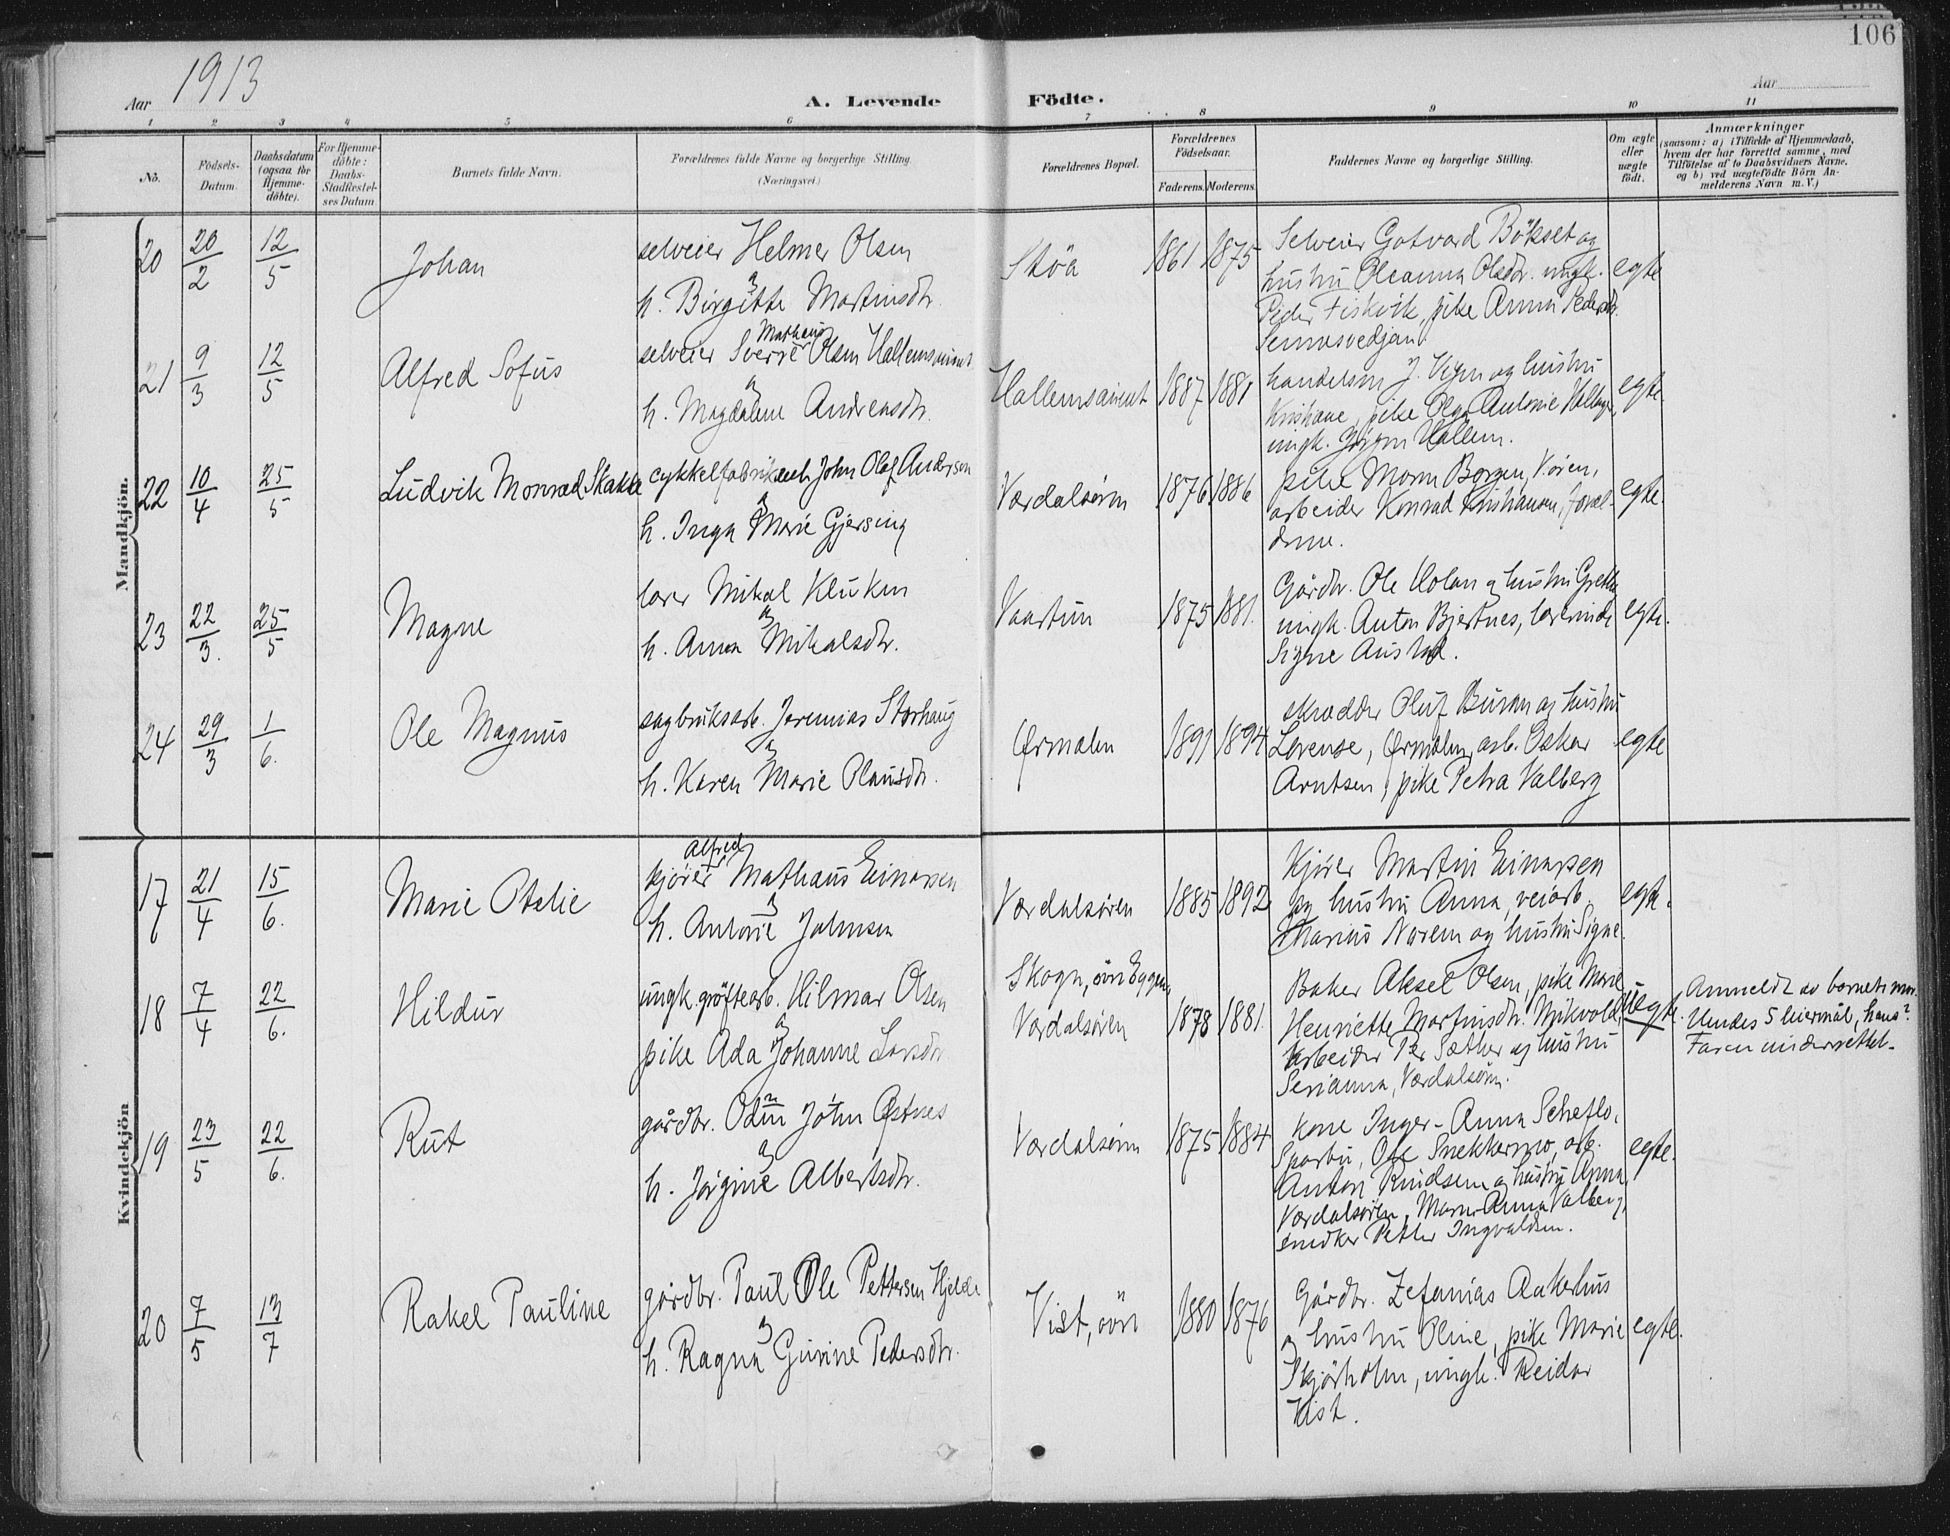 106
Aar 1913
A. Levende Födte.
Aar
1 2 3 4 5 6 7 8 9 10 11
No.
Födsels-Datum.
Daabsdatum (ogsaa for Hjemme-döbte).
For Hjemme-döbte: Daabs-Stadfæstelses Datum
Barnets fulde Navn.
Forældrenes fulde Navne og borgerlige Stilling. (Næringsvei.)
Forældrenes Bopæl.
Forældrenes Födselsaar.
Faderens. Moderens.
Faddernes Navne og borgerlige Stilling.
Om ægte eller uægte födt.
Anmærkninger
(saasom: a) i Tilfælde af Hjemmedaab,
hvem der har forrettet samme, med
Tilföielse af to Daabsvidners Navne.
og b) ved uægtefödte Börn An-
melderens Navn m. V.)
Mandkjön.
20 20/2 12/5 Johan
selveier Helmer Olsen
h. Birgitte Martinsdtr.
Sköa 1861 1875
Selveier Gotvard Bökset og
hustru Oleanna Olsdtr. ungk.
Peder Fiskvik, pike Anna Pedersdtr.
egte
21 9/3 12/5 Alfred Sofus
selveier Sverre Matheus Olsen
h. Magdalene Andreasdtr.
1887 1881
handelsm J. og hustru
pike Olga Antonie
ungk. Jörgen Hallem.
egte.
22 10/4 25/5 Ludvik Monrad
John Olaf Andersen
h. Inga Marie Gjersing
Værdalsören 1876 1886
pike Borgen,
arbeider Konrad Kristiansen, foræl-
drene.
egte.
23 22/3. 25/5 Magne
lærer Mikal Kluken
h. Anna Mikalsdtr.
Vaartun 1875 1881.
Gårdbr. Ole Holan og hustru
ungk. Anton Bjertnes, lærerinde
Signe Austad.
egte.
24 29/3 1/6. Ole Magnus
sagbruksarb. Jeremias Storhaug
h. Karen Marie Olausdtr.
Ørmelen 1891 1894
skrædder Oluf Buran og hustru
Lorense, Ørmelen, arb. Oskar
Arntsen, pike Petra Valberg
egte
Kvindekjön
17 21/4 15/6. Marie Otelie
kjörer Alfred Mathæus Einarsen
h. Antonie Johnsen
Værdalsören 1885 1892
Kjörer Martin Einarsen
og hustru Anna, veiarb.
Marius Norem og hustru Signe.
egte.
18 7/4 22/6. Hildur
ungk. gröftearb. Hilmar Olsen
pike Ada Johanne Larsdtr
Skogn, övre Eggen,
Værdalsören 1878 1881.
Baker Aksel Olsen, pike
Henriette Martinsdtr. Mikvold,
Arbeider Per Sæther og hustru
Serianna, Værdalsören.
uegte.
Anmeldt av barnets mor.
Hendes 5 leiermål, hans?
Faren underrettet.
19 23/5 22/6. Rut
gårdbr. Odin John Østnes
h. Jörgine Albertsdtr.
Værdalsören 1875 1884
kone Inger-Anna Scheflo,
Sparbu, Ole Snekkermo, arb.
Anton Knudsen og hustru Anna,
Værdalsören, Anna Valberg,
snedker Petter Ingvaldsen.
egte.
20 7/5 13/7 Rakel Pauline
gårdbr. Paul Ole Pettersen Hjelde
h. Ragna Gurine Pedersdtr.
Vist, övre 1880 1876
Gårdbr. Zefanias Aakerhus
og hustru Oline, pike Marie
Skjörholm, ungk. Reidar
Vist.
egte.